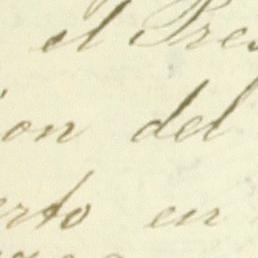 el Pres
ion del
erto en